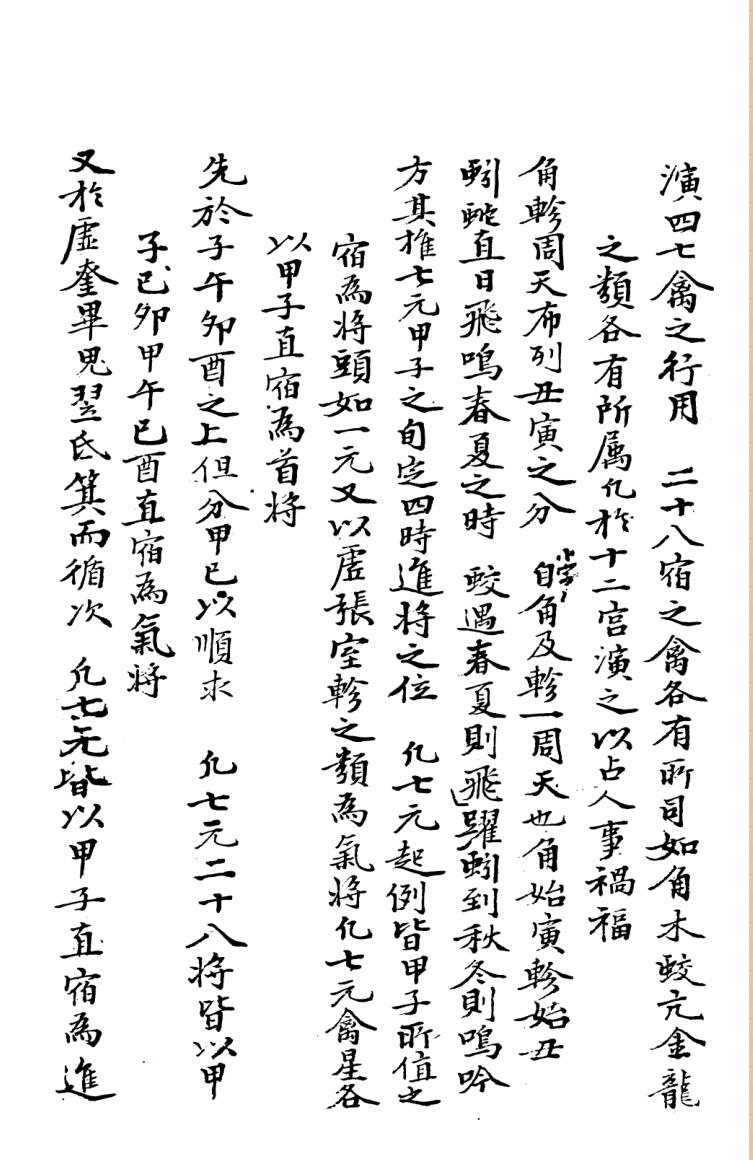 演四七禽之行用　二十八宿之禽各有所司如角木蛟亢金龍
之類各有所属凢於十二宫演之以占人事禍福
角軫周天布列丑寅之分　小字　自角及軫一周天也角始寅軫始丑
蚓蛇直日飛鳴春夏之時　蛟遇春夏則飛躍蚓到秋冬則鳴吟
方其推七元甲子之旬定四時進將之位　凢七元起例皆甲子所值之
宿為将頭如一元又以虚張室軫之類為氣将凢七元禽星各
以甲子直宿為首将
先於子午夘酉之上但分甲己以順求　凢七元二十八将皆以甲
子己夘甲午己酉直宿為氣将
又於虚奎畢鬼翌氐箕而循次　凢七元皆以甲子直宿為進